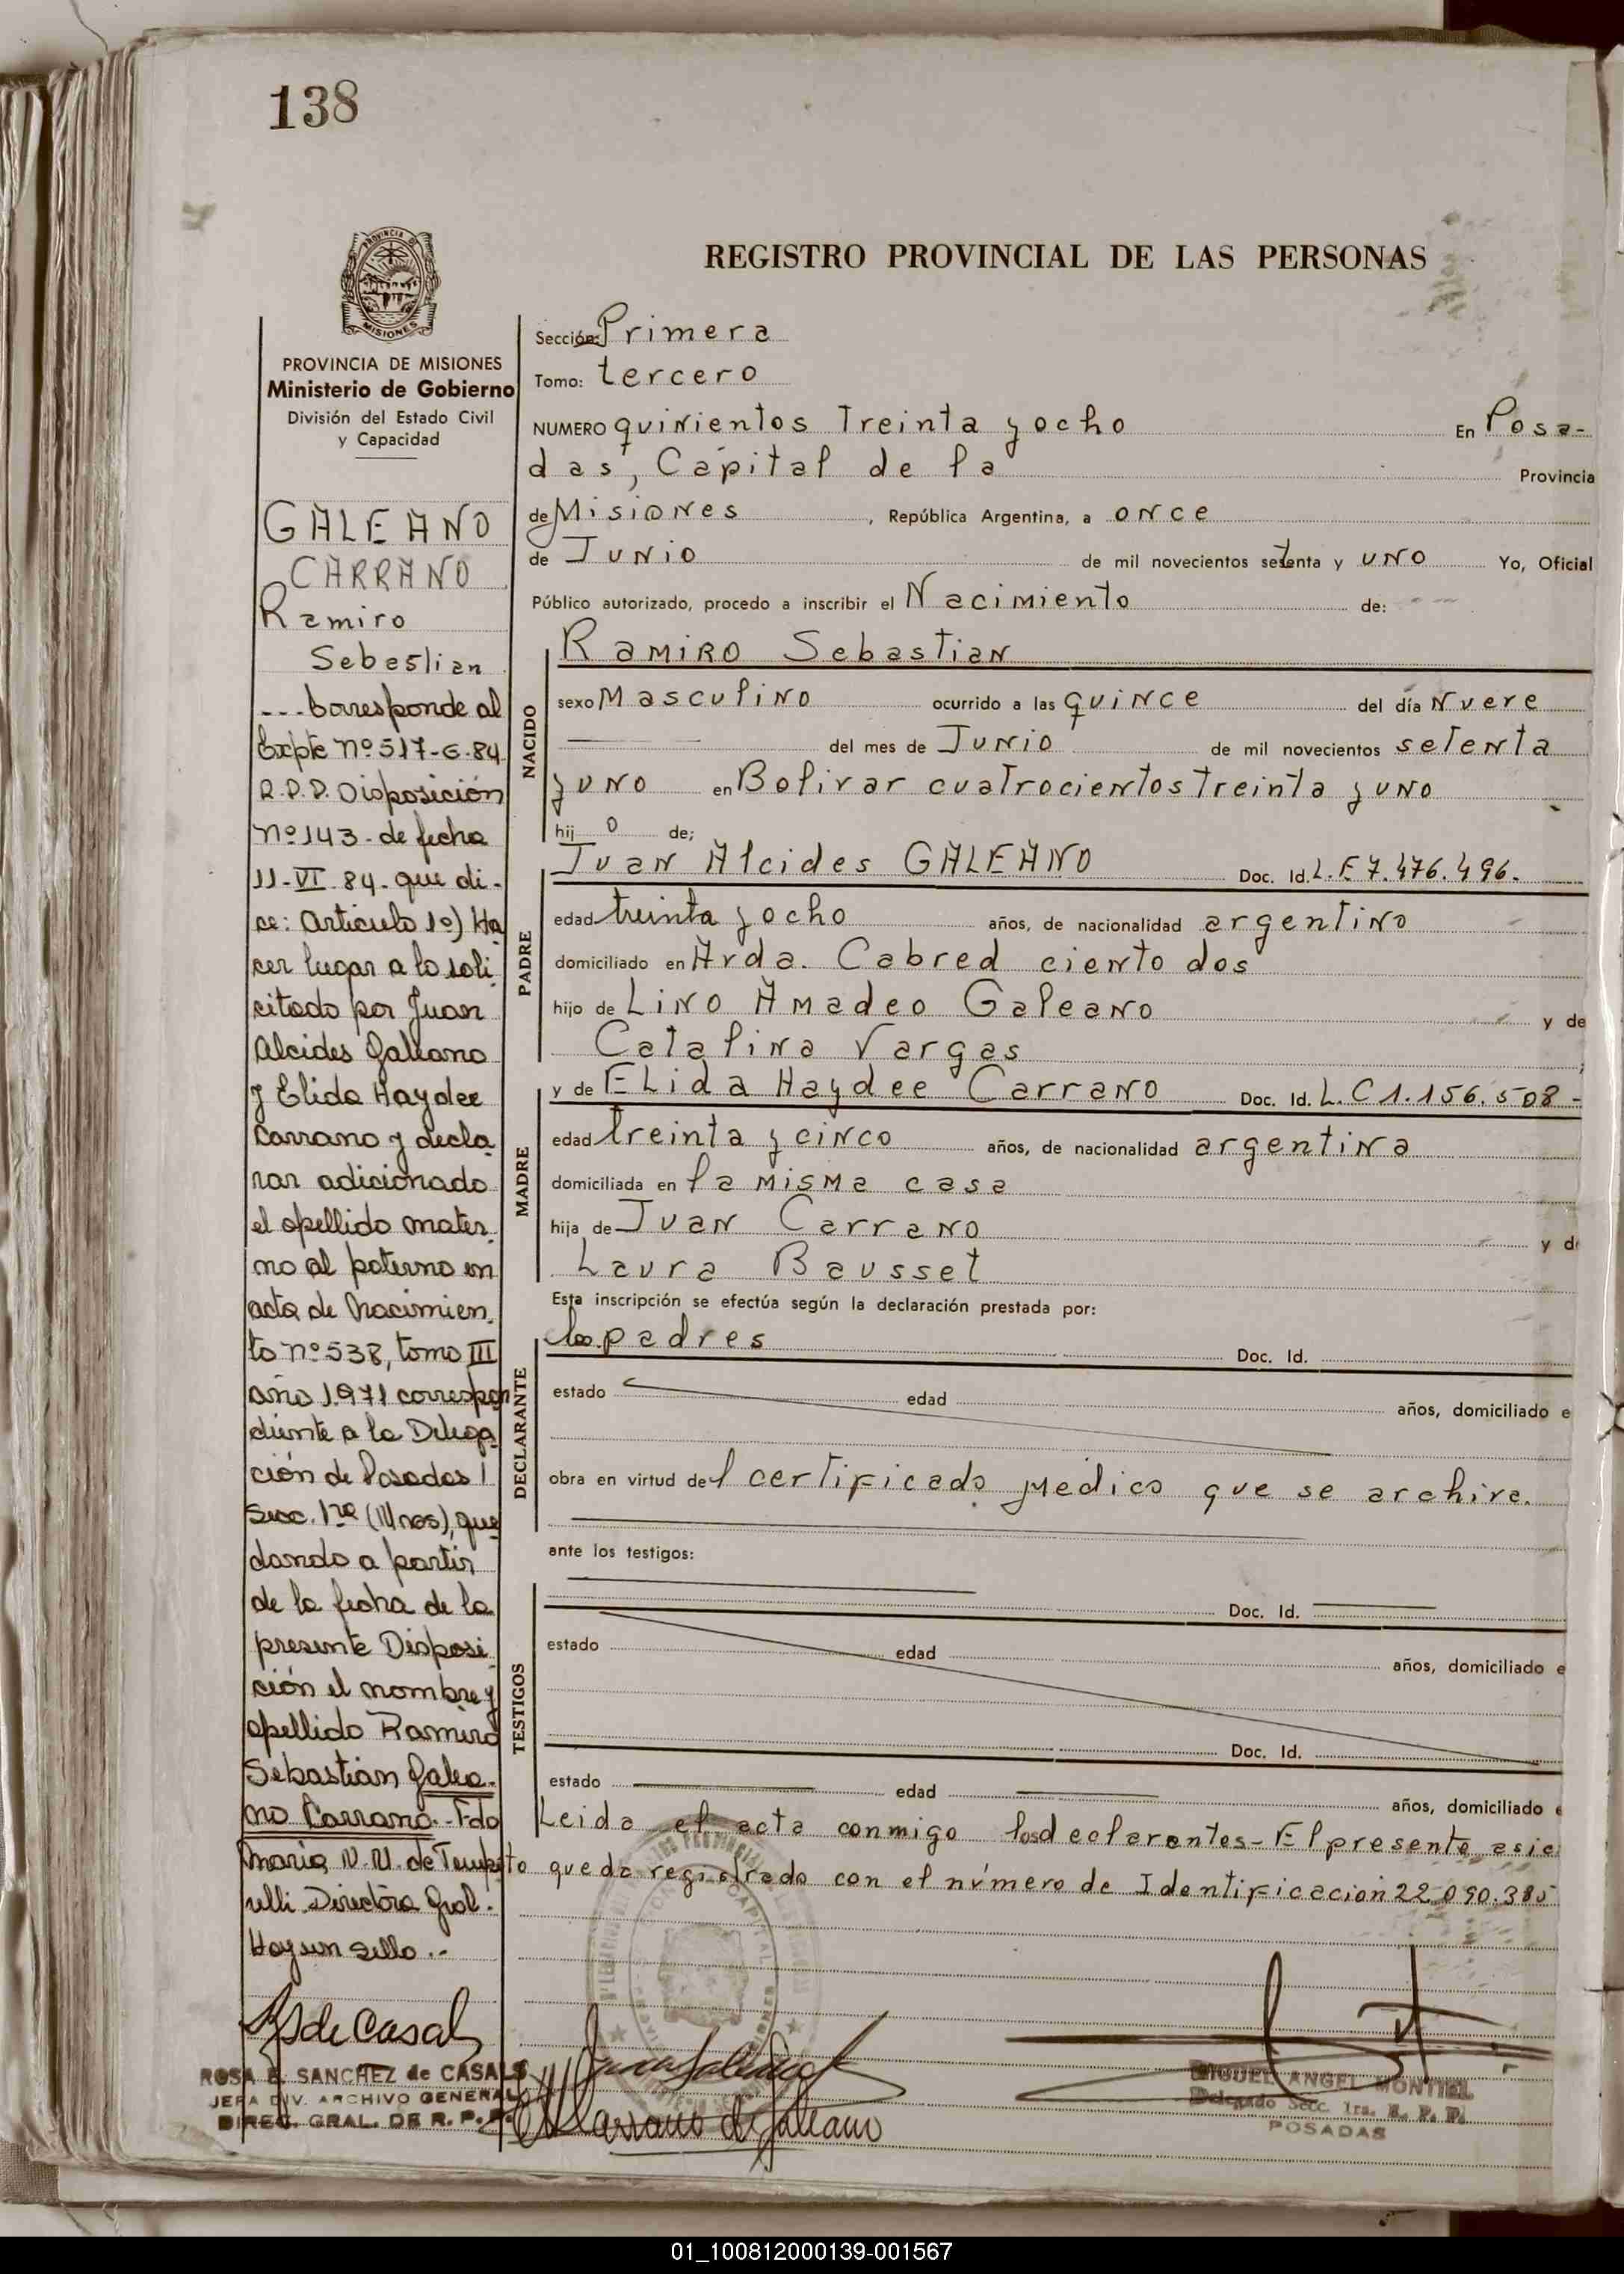 138
REGISTRO PROVINCIAL DE LAS PERSONAS
PROVINCIA DE
MISIONES
PROVINCIA DE MISIONES
Ministerio de Gobierno
División del Estado Civil
y Capacidad
GALEANO
CARRANO
Ramiro
Sebestian
--- Corresponde al
Expte Nº 517-G-84
R.P.P. Disposición
Nº 143- de fecha
11-VI-84- que di-
ce: Articulo 1º) Ha
cer lugar a lo soli
citado por Juan
Alcides Galeano
y Elida Haydee
Carrano y decla
rar adicionado
el apellido mater
no al paterno en
acta de Nacimien
to nº 538, tomo III
año 1971 correspon
diente a la Delega
ción de Posadas 1
Secc. 1ra (Mnes), que
dando a partir
de la fecha de la
presente Disposi
ción el nombre y
apellido Ramiro
Sebastián Galea-
no Carrano.- Fdo
Maria N. U. de
relli Directora Gral.
Hay un sello.--
ROSA E. SANCHEZ de CASALS
JEFA DIV. ARCHIVO GENERAL
DIREC. GRAL. DE R. P. P.
Sección: Primera
Tomo: tercero
NUMERO quinientos Treinta y ocho En Posa-
das, Capital de la Provincia
de Misiones, República Argentina, a once
de Junio de mil novecientos setenta y uno Yo, Oficial
Público autorizado, procedo a inscribir el Nacimiento de:
NACIDO
Ramiro Sebastian
sexo Masculino ocurrido a las quince del día Nueve
del mes de Junio de mil novecientos setenta
y uno en Bolivar cuatrocientos treinta y uno
hijo de;
PADRE
Juan Alcides GALEANO Doc. Id. L.E 7.476.496.
edad treinta y ocho años, de nacionalidad argentino
domiciliado en Avda. Cabred ciento dos
hijo de Lino Amadeo Galeano y de
Catalina Vargas ;
MADRE
y de Elida Haydee Carrano Doc. Id. L.C 1.156.508-
edad treinta y cinco años, de nacionalidad argentina
domiciliada en la misma casa
hija de Juan Carrano y d
Laura Bausset
Esta inscripción se efectúa según la declaración prestada por:
DECLARANTE
los padres Doc. Id.
estado edad años, domiciliado e
obra en virtud del certificado médico que se archiva.
ante los testigos:
TESTIGOS
Doc. Id.
estado edad años, domiciliado e
Doc. Id.
estado edad años, domiciliado e
Leida el acta conmigo los declarantes- El presente
to queda registrado con el número de Identificacion 22.090.385
E H Carrano de Galeano
MIGUEL ANGEL MONTIEL
Delegado Secc. 1ra. R. P. P.
POSADAS
01_100812000139-001567